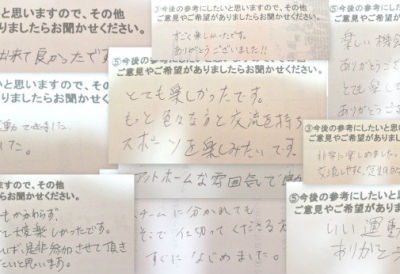 と思いますので、その他
ありましたらお聞かせください。
出来て良かったです
③今後の参考にしたいと思い
ご意見やご希望がありまし
すごく楽しかったです。
ありがとうございました!!
⑤今後の参考
ご意見やご希
楽しい機会
ありがとうござ
とても楽し
ありがとうご
いと思いますので、その他
ありましたらお聞かせください。
⑤今後の参考にしたいと思いますので、その他
ご意見やご希望がありましたらお聞かせください。
とても楽しかったです。
もっと色々な方と交流を持ち
スポーツを楽しみたいです。
③今後の参考にしたいと思い
ご意見やご希望がありまし
非常に楽しめました。
アットホームな雰囲気で
ますので、その他
ましたらお聞かせください。
もかかわらず、
楽しかったです。
是非参加させて頂き
たいと思います。
チームに分かれても
すぐになじめました。
⑤今後の参考にしたいと思いま
ご意見やご希望がありました
いい運動
ありがとう